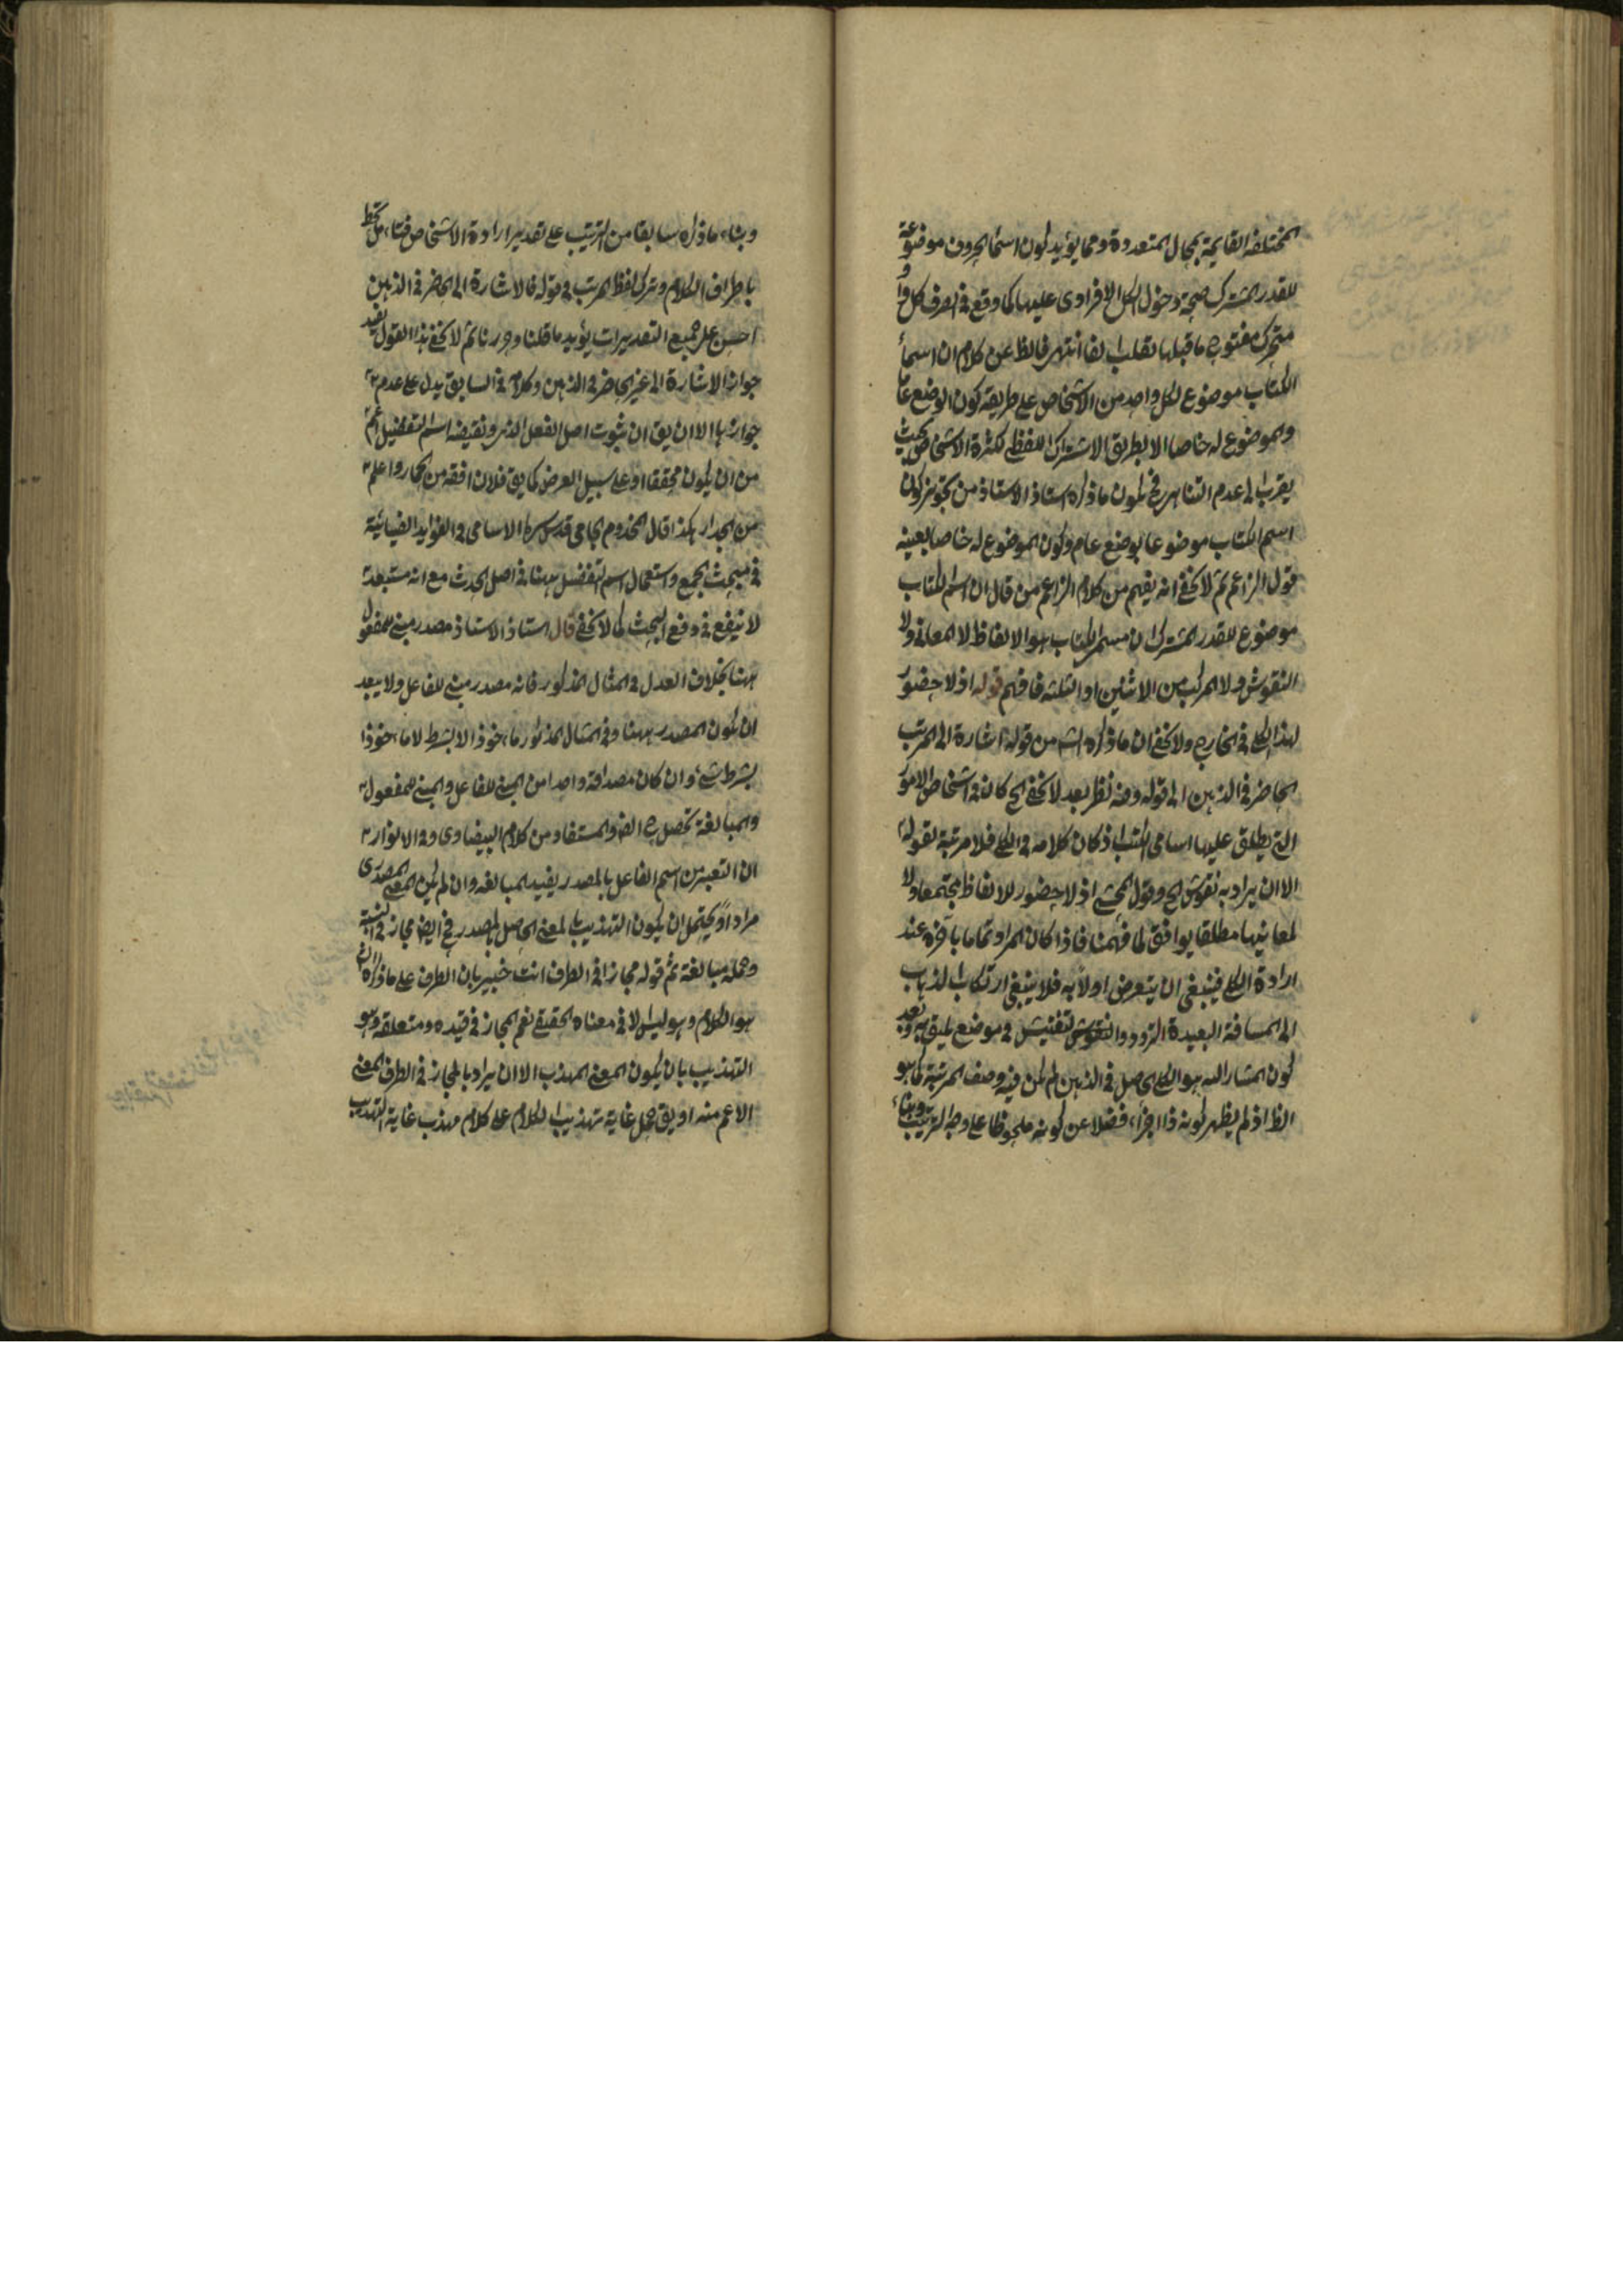 المختلفة القايمة بمحال المتعددة ومما يؤيد كون اسماء الحروف موضوعة
للقدر المشترك صحة دخول الكل الافرادى عليها كما وقع فى الصرف كل واو
متحرك مفتوح ما قبلها تقلب الفا انتهى فالظ من كلام ان اسماء
الكتاب موضوع لكل واحد من الاشخاص على طريقة كون الوضع عاما
والموضوع له خاصا لا بطريق الاشتراك اللفظى لكثرة الاشخاص بحيث
يقرب الى عدم التناهى فح يكون ما ذكره استاذ الاستاذ من تجويز كون
اسم الكتاب موضوعا بوضع عام وكون الموضوع له خاصا بعينه
قول الزاعم ثم لا يخفى انه يفهم من كلام الزاعم من قال ان اسم الكتاب
موضوع للقدر المشترك ان مسمى الكتاب هو الالفاظ لا المعانى ولا
النقوش ولا المركب من الاثنين او الثلثة فافهم قوله اذ لا حضور
لهذا الكلى فى الخارج ولا يخفى ان ما ذكره الش من قوله اشارة الى المرتب
الحاضر فى الذهن الى قوله وفيه نظر بعد لا يخفى الح كان فى اشخاص الامور
التى يطلق عليها اسامى الكتب اذ كان كلامه فى الكلى فلا مرتبة لقوله
الا ان يراد به نقوش الح وقول المحشى اذ لا حضور للالفاظ مجتمعا ولا
لمعانيها مطلقا يوافق لما فهمنا فاذا كان المراد تماما بآخره عند
ارادة الكلى فينبغى ان يتعرض اولا به فلا ينبغى ارتكاب الذهاب
الى المسافة البعيدة التردد والتفتيش فى موضع يليق به وبعد
كون المشار اليه هو الكلى الحاصل فى الذهن لم يكن فيه وصف المرتبة كما هو
الظ اذ لم يظهر كونه ذا اجزاء فضلا عن كونه ملحوظا على وجه الترتيب وبناء
وبناء ما ذكره سابقا من الترتيب على تقدير ارادة الاشخاص فتامل تحط
باطراف الكلام وترك لفظ المرتب فى قوله فالاشارة الى الحاضر فى الذهن
احسن على جميع التقديرات يؤيد ما قلنا وحررنا ثم لا يخفى هذا القول يفيد
جواز الاشارة الى غير الحاضر فى الذهن وكلام فى السابق يدل على عدم
جوازها الا ان يق ان ثبوت اصل الفعل الذى يقتضيه اسم التفضيل اعم
من ان يكون محققا او على سبيل الفرض كما يق فلان افقه من الحمار واعلم
من الجدار هكذا قال المخدوم الجامى قدس سره الاسامى فى الفوايد الضيائية
فى مبحث الجمع واستعمال اسم التفضيل ههنا فى اصل الحدث مع انه مستبعد
لا ينفع فى دفع البحث كما لا يخفى قال استاذ الاستاذ مصدر مبنى للمفعول
ههنا بخلاف العدل فى المثال المذكور فانه مصدر مبنى للفاعل ولا يبعد
ان يكون المصدر ههنا وفى المثال المذكور ماخوذا لا بشرط لا ماخوذا
بشرط شئ وان كان مصداقه واحدا من المبنى للفاعل والمبنى للمفعول
والمبالغة تحصل ح ايض والمستفاد من كلام البيضاوى وفى الانوار
ان التعبير من اسم الفاعل بالمصدر يفيد المبالغة وان لم يكن المعنى المصدرى
مرادا ويحتمل ان يكون التهذيب بالمعنى الحاصل بالمصدر فح ايض مجاز فى النسبة
وحمله مبالغة ثم قوله مجازا فى الطرف انت خبير بان الطرف على ما ذكره الش
هو الكلام وهو ليس الا فى معناه الحقيقى نعم المجاز فى قيده ومتعلقه وهو
التهذيب بان يكون المعنى المهذب الا ان يراد بالمجاز فى الطرف المعنى
الاعم منه او يق حمل غاية تهذيب الكلام على كلام مهذب غاية التهذيب